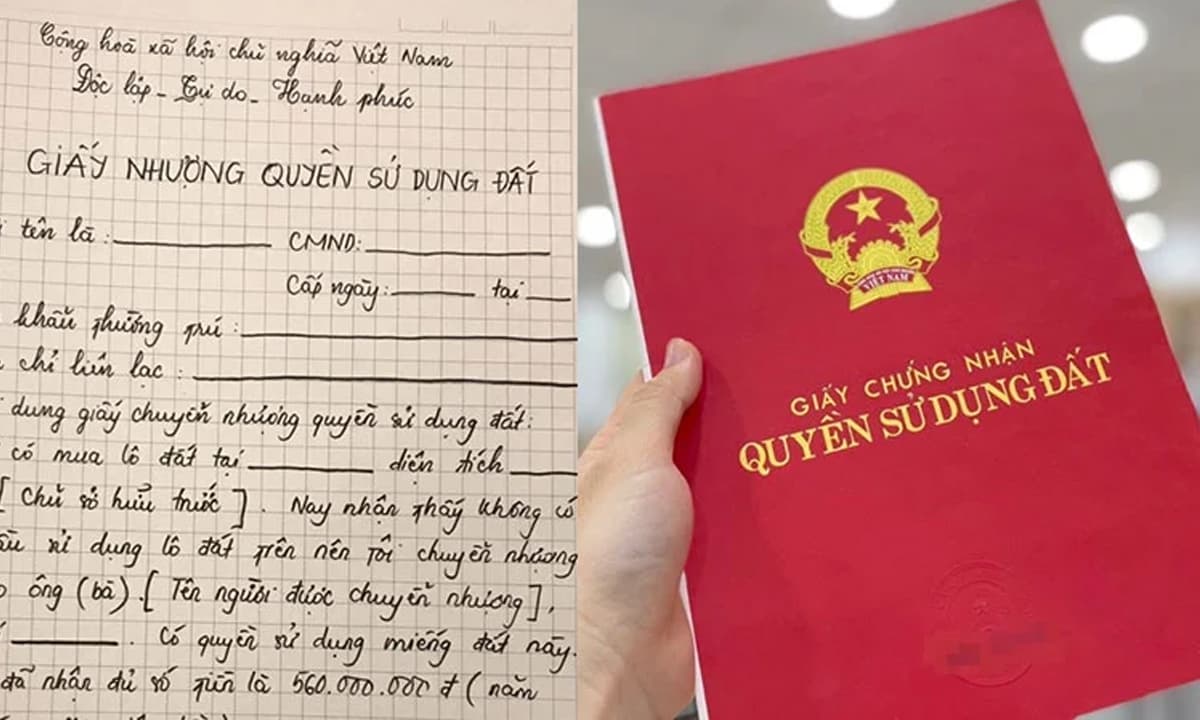 Cộng hoà xã hội chủ nghĩa Việt Nam
Độc lập - Tự do - Hạnh phúc
GIẤY NHƯỢNG QUYỀN SỬ DỤNG ĐẤT
tên là : CMND:
Cấp ngày: tại
khẩu thường trú :
chỉ liên lạc :
dung giấy chuyển nhượng quyền sử dụng đất:
có mua lô đất tại diện tích
[ Chủ sở hữu trước ]. Nay nhận thấy không có
sử dụng lô đất trên nên tôi chuyển nhượng
ông (bà).[ Tên người được chuyển nhượng],
. Có quyền sử dụng miếng đất này.
đã nhận đủ số tiền là 560.000.000 đ ( năm
VIỆT NAM
GIẤY CHỨNG NHẬN
QUYỀN SỬ DỤNG ĐẤT